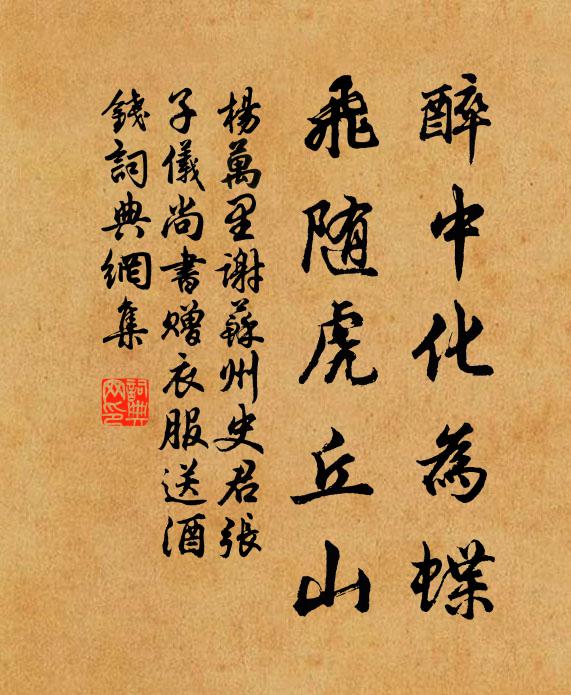 醉中化為蝶
飛随虎丘山
楊萬里謝蘇州史君張
子儀尚書贈衣服送酒
錢詞典網集
詞典
网印